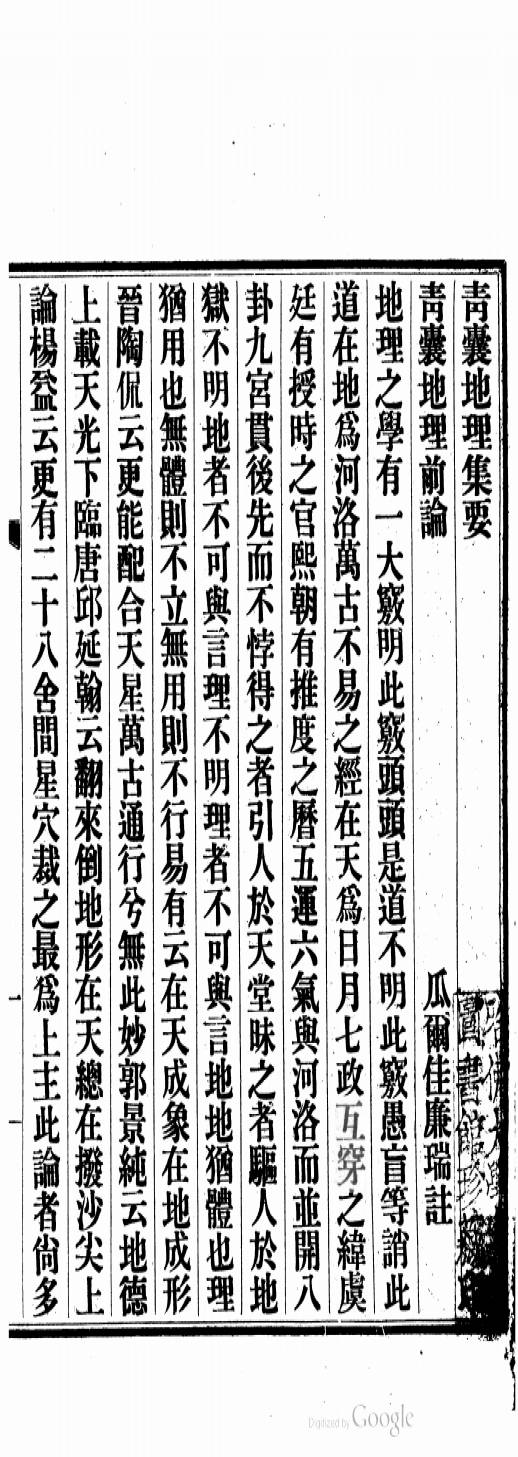 青囊地理集要
青囊地理前論
瓜爾佳廉瑞註
地理之學有一大竅明此竅頭頭是道不明此竅愚盲等誚此
道在地爲河洛萬古不易之經在天爲日月七政互穿之緯虞
廷有授時之官熙朝有推度之曆五運六氣與河洛而並開八
卦九宮貫後先而不悖得之者引人於天堂昧之者驅人於地
獄不明地者不可與言理不明理者不可與言地地猶體也理
猶用也無體則不立無用則不行易有云在天成象在地成形
晉陶侃云更能配合天星萬古通行兮無此妙郭景純云地德
上載天光下臨唐邱延翰云翻來倒地形在天總在撥沙尖上
論楊益云更有二十八舍間星穴裁之最爲上主此論者尙多
一
圖書館珍藏印
Digitized by Google